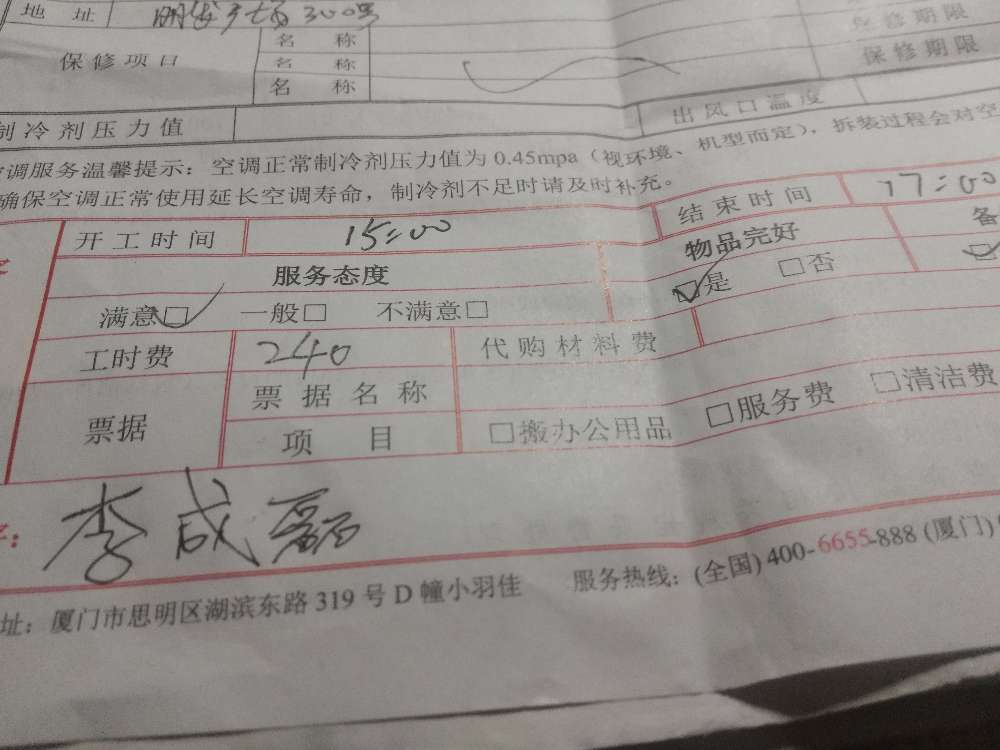 地 址 明发广场300号
保修项目 名 称 保修期限
名 称 保修期限
名 称
制冷剂压力值 出风口温度
空调服务温馨提示：空调正常制冷剂压力值为 0.45mpa（视环境、机型而定），拆装过程会对空
确保空调正常使用延长空调寿命，制冷剂不足时请及时补充。
开工时间 15:00 结束时间 17:00
服务态度 物品完好 备
满意☑ 一般□ 不满意□ ☑是 □否
工时费 240 代购材料费
票据 票据名称
项 目 □搬办公用品 □服务费 □清洁费
字：李成
址：厦门市思明区湖滨东路 319 号 D 幢小羽佳 服务热线：(全国) 400-6655-888 (厦门)